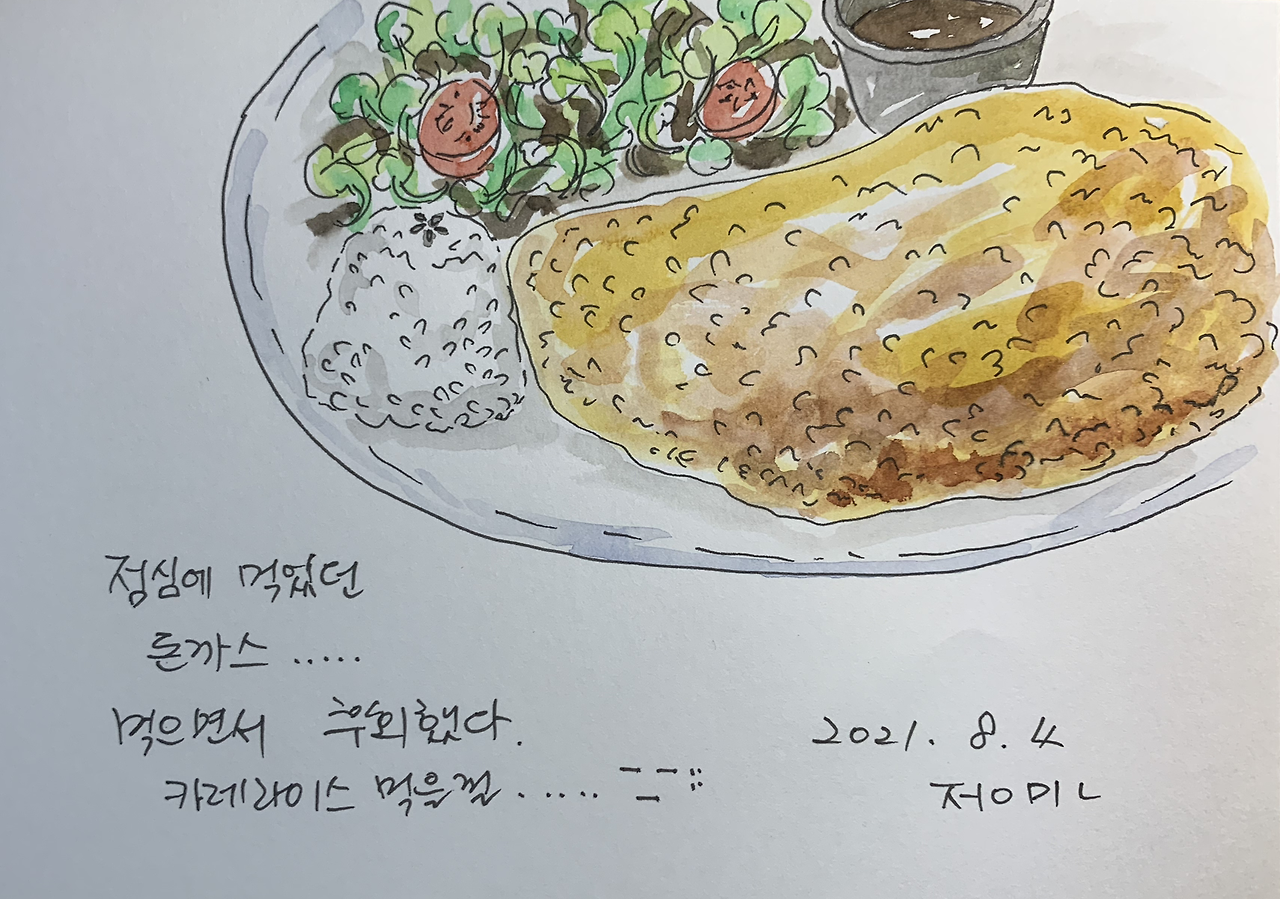 점심에 먹었던
돈까스 .....
먹으면서 후회했다.
카레라이스 먹을껄 .....
2021. 8. 4